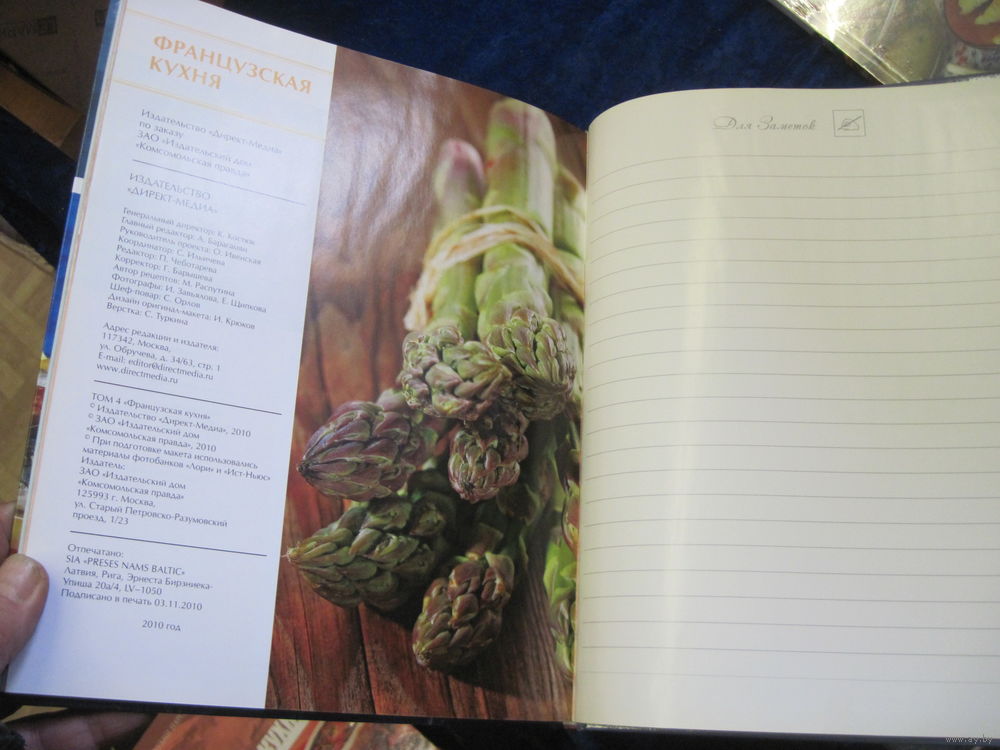 ФРАНЦУЗСКАЯ
КУХНЯ
Издательство «Директ-Медиа»
по заказу
ЗАО «Издательский дом
«Комсомольская правда»
ИЗДАТЕЛЬСТВО
«ДИРЕКТ-МЕДИА»
Генеральный директор: К. Костюк
Главный редактор: А. Барагамян
Руководитель проекта: О. Ивенская
Координатор: С. Ильичева
Редактор: П. Чеботарева
Корректор: Г. Барышева
Автор рецептов: М. Распутина
Фотографы: И. Завьялова, Е. Щипкова
Шеф-повар: С. Орлов
Дизайн оригинал-макета: И. Крюков
Верстка: С. Туркина
Адрес редакции и издателя:
117342, Москва,
ул. Обручева, д. 34/63, стр. 1
E-mail: editor@directmedia.ru
www.directmedia.ru
ТОМ 4 «Французская кухня»
© Издательство «Директ-Медиа», 2010
© ЗАО «Издательский дом
«Комсомольская правда», 2010
© При подготовке макета использовались
материалы фотобанков «Лори» и «Ист-Ньюс»
Издатель:
ЗАО «Издательский дом
«Комсомольская правда»
125993 г. Москва,
ул. Старый Петровско-Разумовский
проезд, 1/23
Отпечатано:
SIA «PRESES NAMS BALTIC»
Латвия, Рига, Эрнеста Бирзниека-
Упиша 20а/4, LV–1050
Подписано в печать 03.11.2010
2010 год
Для Заметок
www.ay.by